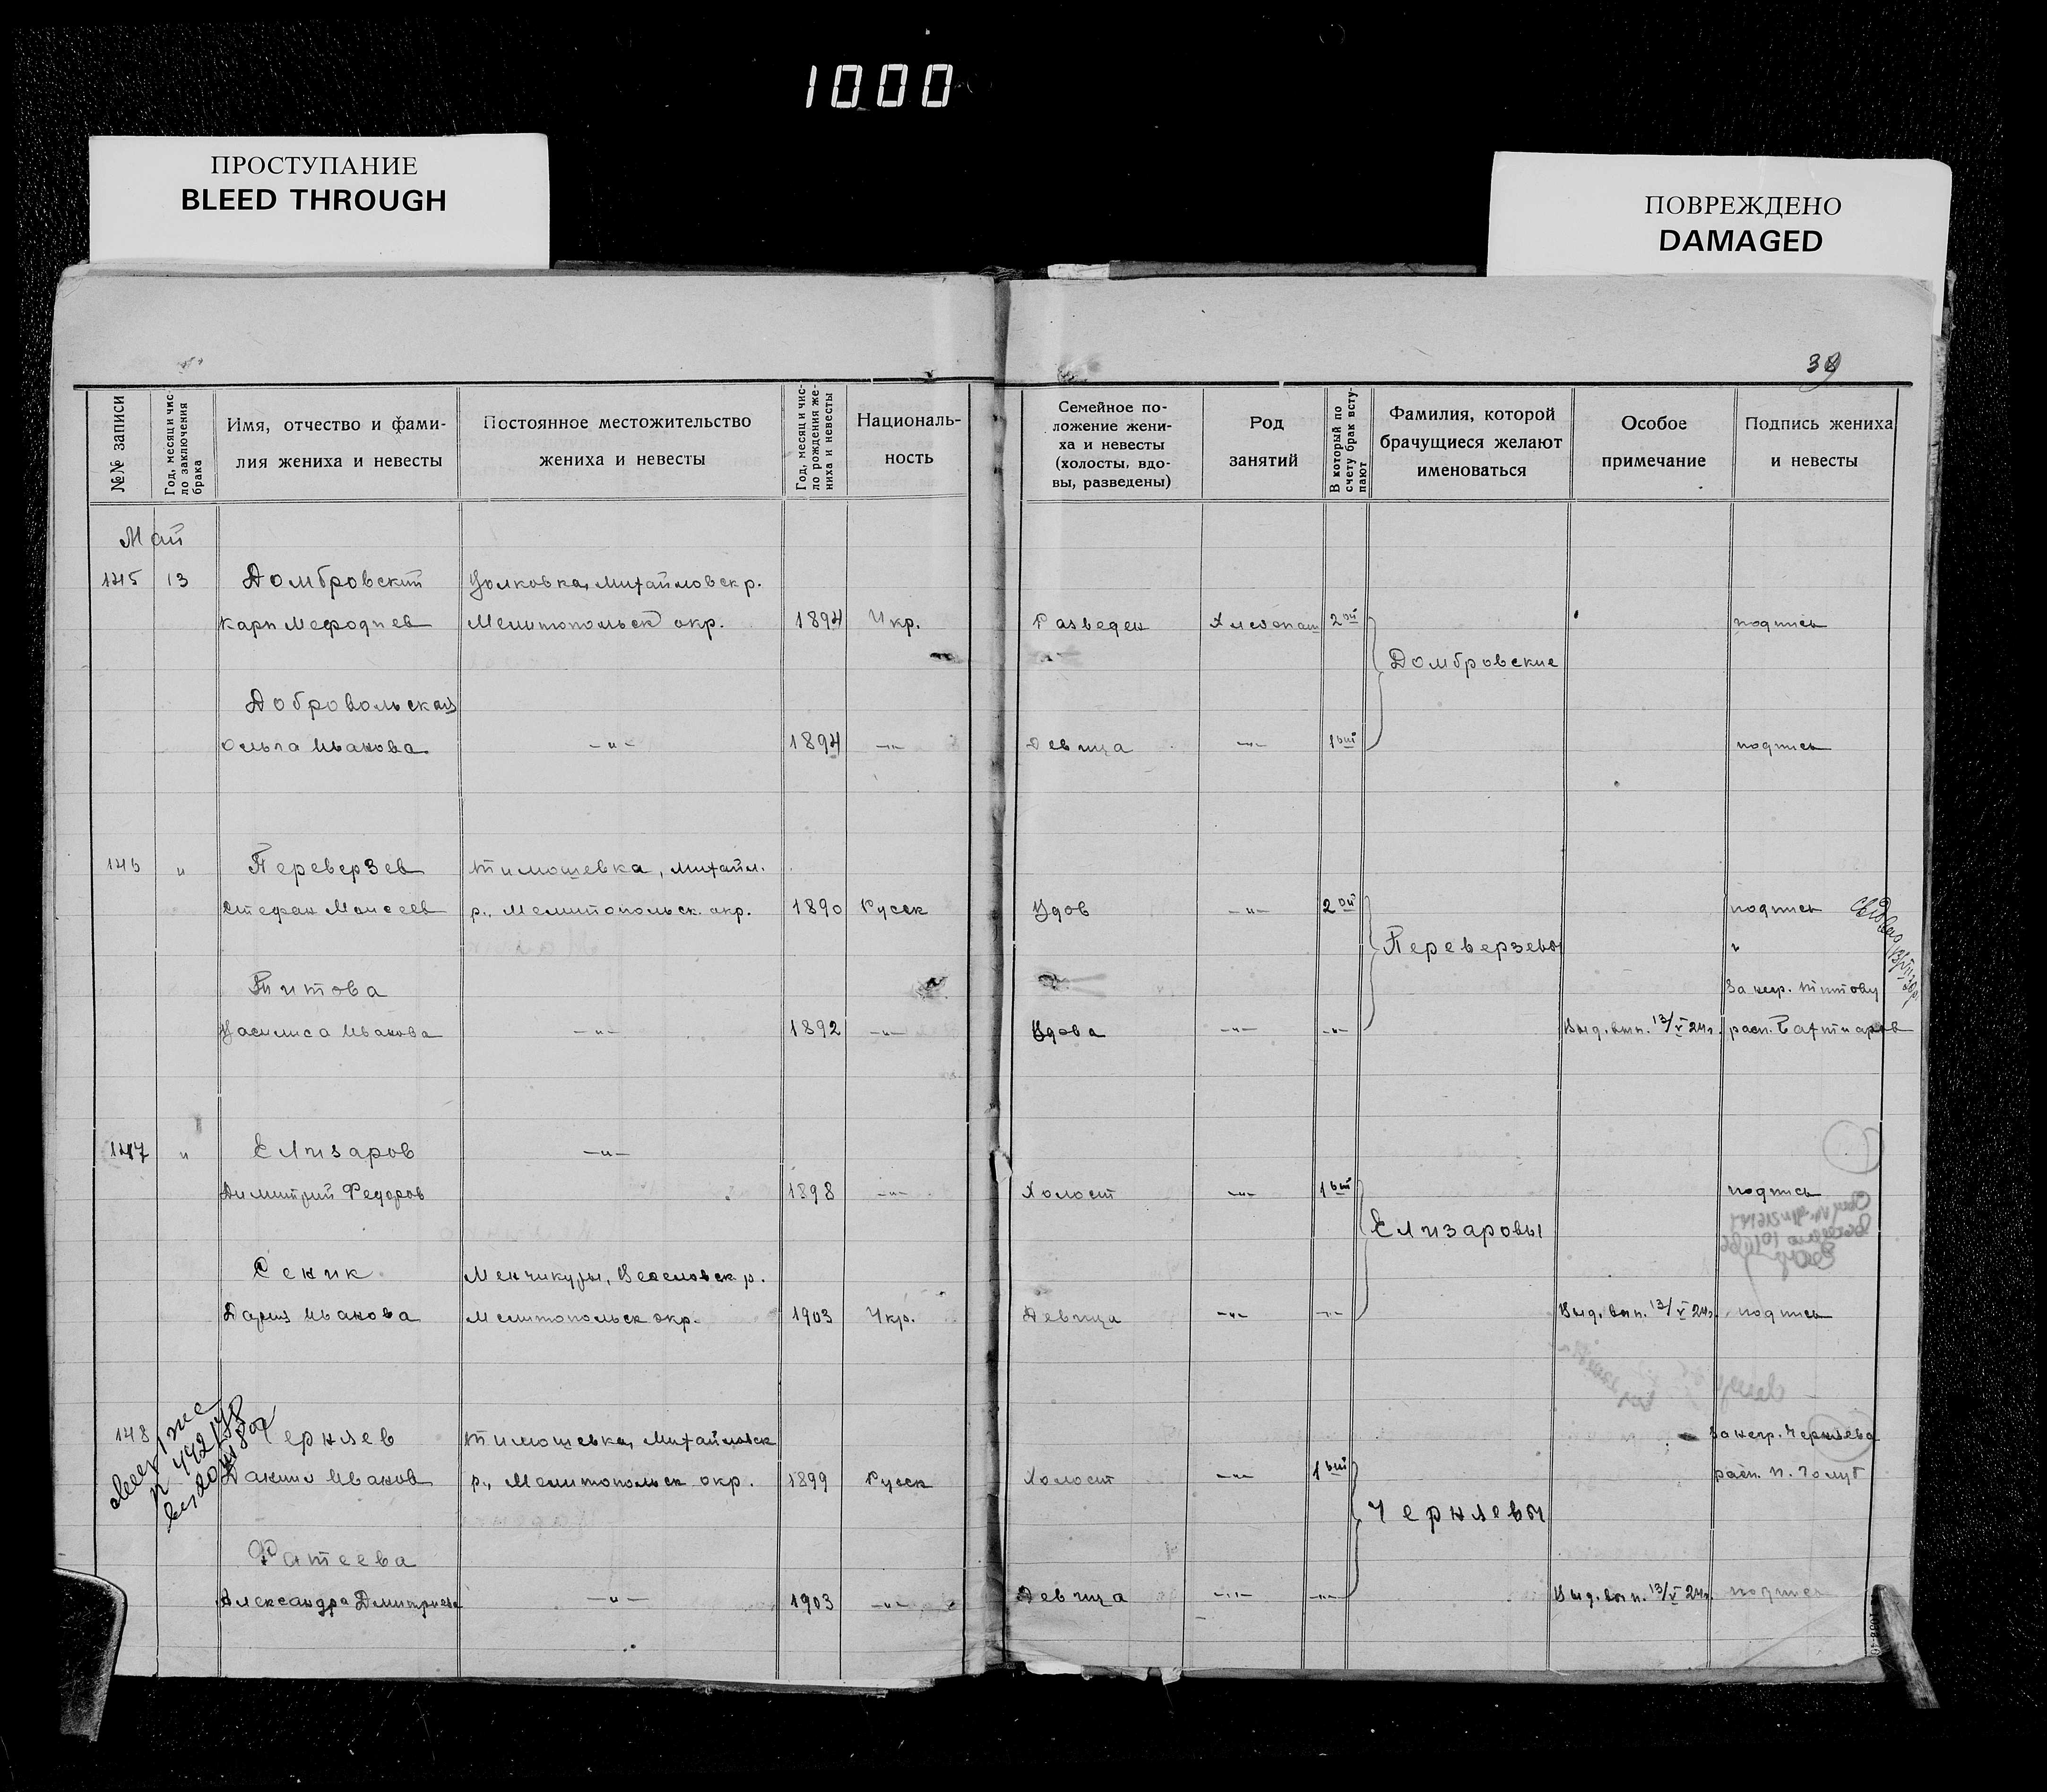 1000
ПРОСТУПАНИЕ
BLEED THROUGH
ПОВРЕЖДЕНО
DAMAGED
39
№№ записи
Год, месяц и чис-
ло заключения
брака
Имя, отчество и фами-
лия жениха и невесты
Постоянное местожительство
жениха и невесты
Год, месяц и чис-
ло рождения же-
ниха и невесты
Националь-
ность
Семейное по-
ложение жени-
ха и невесты
(холосты, вдо-
вы, разведены)
Род
занятий
В который по
счету брак всту-
пают
Фамилия, которой
брачущиеся желают
именоваться
Особое
примечание
Подпись жениха
и невесты
Май
145 13 Домбровский Волковка, Михайловск р.
Карп Мефодиев Мелитопольск окр. 1894 Укр. Разведен Хлебопаш 2ой подпись
Домбровские
Добровольская
Ольга Иванова —〃— 1894 —〃— Девица —〃— 1ый подпись
146 〃 Переверзев Тимошевка, Михайл.
Стефан Моисеев р., Мелитопольск. окр. 1890 Русск Вдов —〃— 2ой подпись
Переверзевы 〃
Титова За негр. Титову
Василиса Иванова —〃— 1892 —〃— Вдова —〃— —〃— Выд. вып. 13/V 24г. расп.
147 〃 Елизаров —〃—
Димитрий Федоров 1898 —〃— Холост —〃— 1ый подпись
Елизаровы
Сеник Менчикуры, Веселовск р.
Дария Иванова Мелитопольск окр. 1903 Укр. Девица —〃— —〃— Выд. вып. 13/V 24г. подпись
148 Черняев Тимошевка, Михайловск За негр. Черняева
Данил Иванов р., Мелитопольск окр. 1899 Русск Холост —〃— 1ый расп. П. Голуб
Черняевы
Фатеева
Александра Дмитриева —〃— 1903 —〃— Девица —〃— —〃— Выд. вып. 13/V 24г. подпись